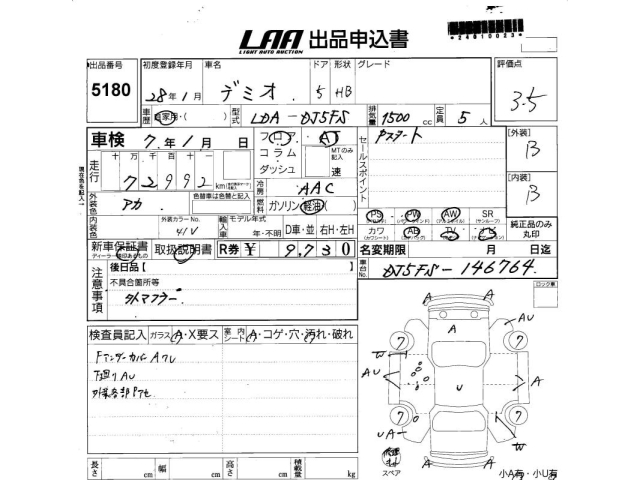 LAA 出品申込書
LIGHT AUTO AUCTION
*24010023*
出品番号 5180
初度登録年月 28年1月
車名 デミオ
ドア 5
形状 HB
グレード
評価点 3.5
車歴 自家用・( )
型式 LDA-DJ5FS
排気量 1500 cc
定員 5人
車検 7年1月 日
フロア AT
コラム
ダッシュ
MTのみ記入 速
セールスポイント
Pスタート
[外装] B
[内装] B
現在色を記入
走行 十万千百十
72992 km
冷房 AAC
燃料 ガソリン・軽油・( )
外装色 アカ
色替車は色替と記入
外装カラーNo. 41V
輸入車 モデル年式 年・不明
D車・並 右H・左H
PS PW AW SR
カワ AB TV ナビ
純正品のみ丸印
新車保証書 取扱説明書
R券 ¥ 9,730
名変期限 月 日迄
車台No. DJ5FS-146764
注意事項
後日品【 】
不具合箇所等
外マフラー
ロック車
検査員記入
ガラス A・X要ス
室内シート A・コゲ・穴・汚れ・破れ
Fアンダーカバー Aワレ
下廻りAU
長さ cm 幅 cm 高さ cm 積載量 kg
A A
A AU
7 7
W
AU U A
7 7
UA W
A A
スペア
小A有・小U有